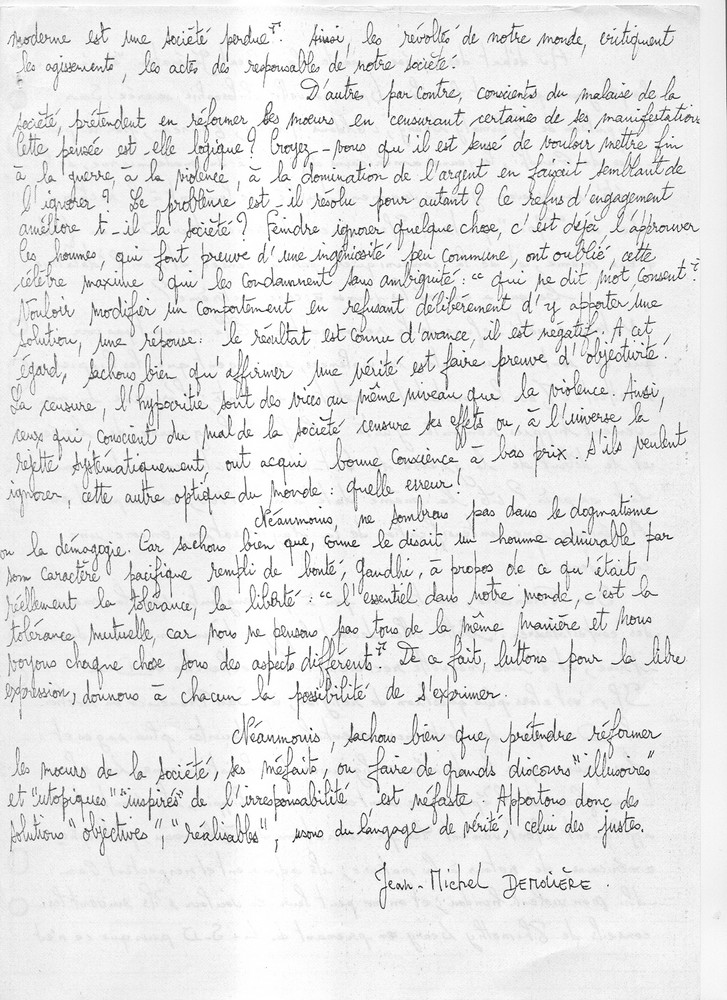 moderne est une société perdue". Ainsi, les révoltés de notre monde, critiquent
les agissements, les actes des responsables de notre société.
D'autres par contre, conscients du malaise de la
société, prétendent en réformer les moeurs en censurant certaines de ses manifestations
Cette pensée est-elle logique? Croyez-vous qu'il est sensé de vouloir mettre fin
à la guerre, à la violence, à la domination de l'argent en faisait semblant de
l'ignorer? Le problème est-il résolu pour autant? Ce refus d'engagement
améliore t-il la société? Feindre ignorer quelque chose, c'est déjà l'approuver
Ces hommes qui font preuve d'une ingéniosité peu commune, ont oublié, cette
célèbre maxime qui les condamnent sans ambiguité: "qui ne dit mot consent".
Vouloir modifier un comportement en refusant délibérement d'y apporter une
solution, une réponse: le résultat est connu d'avance, il est négatif. A cet
égard, sachons bien qu'affirmer une vérité est faire preuve d'objectivité!
La censure, l'hypocritie sont des vices au même niveau que la violence. Ainsi,
ceux qui, conscient du mal de la société censure ses effets ou, à l'inverse la
rejette systématiquement, ont acqui bonne conscience à bas prix. S'ils veulent
ignorer, cette autre optique du monde: quelle erreur!
Néanmoins, ne sombrons pas dans le dogmatisme
ou la démagogie. Car sachons bien que, comme le disait un homme admirable par
son caractère pacifique rempli de bonté, Gandhi, à propos de ce qu'était
réellement la tolérance, la liberté: "l'essentiel dans notre monde, c'est la
tolérance mutuelle, car nous ne pensons pas tous de la même manière et nous
voyons chaque chose sous des aspects différents". De ce fait, luttons pour la libre
expression, donnons à chacun la possibilité de s'exprimer.
Néanmoins, sachons bien que, prétendre réformer
les moeurs de la société, ses méfaits, ou faire de grands discours "illusoires"
et "utopiques" "inspirés" de l'irresponsabilité est néfaste. Apportons donc des
solutions "objectives", "réalisables", usons du langage de vérité, celui des justes.
Jean-Michel DEMOLIÈRE.